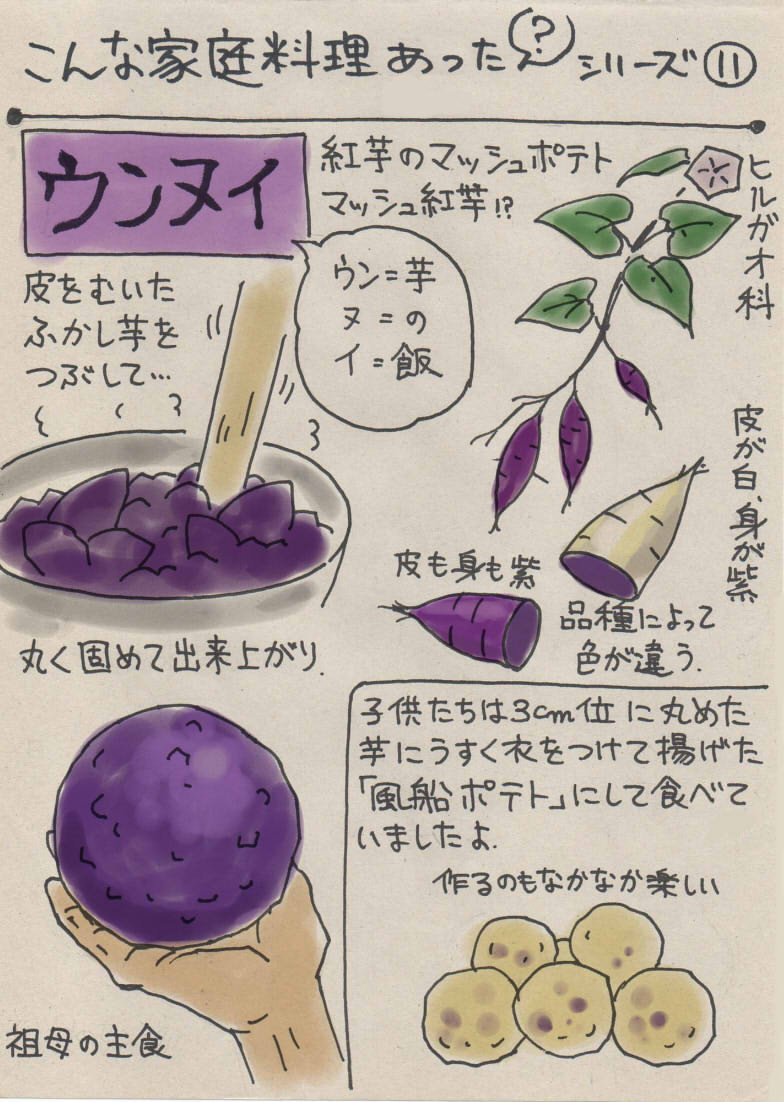 こんな家庭料理あった?シリーズ⑪
ウンヌイ
紅芋のマッシュポテト
マッシュ紅芋!?
ウン=芋
ヌ=の
イ=飯
ヒルガオ科
皮をむいた
ふかし芋を
つぶして…
皮が白、身が紫
皮も身も紫
品種によって
色が違う.
丸く固めて出来上がり.
祖母の主食
子供たちは3cm位に丸めた
芋にうすく衣をつけて揚げた
「風船ポテト」にして食べて
いましたよ.
作るのもなかなか楽しい